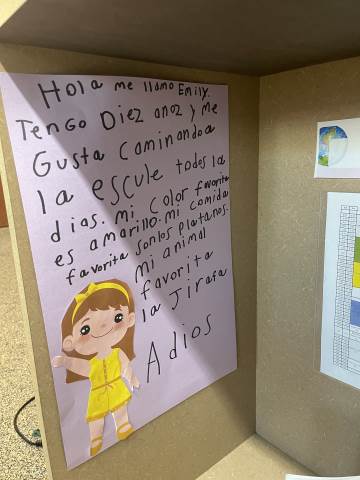 Hola me llamo Emily.
Tengo Diez anoz y Me
Gusta Caminando a
la escule todes la
dias. mi color favorito
es amarillo. mi comida
favorita son los platanos.
mi animal
favorita
la Jirafa
Adios